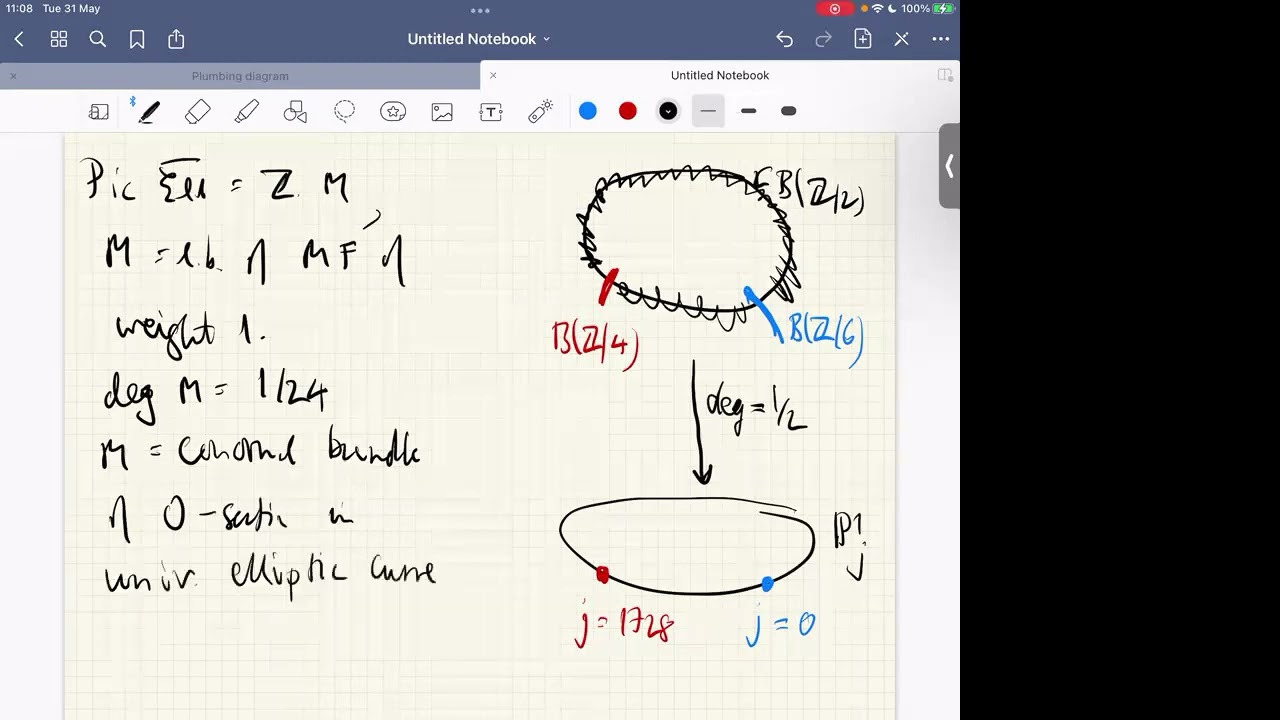 11:08 Tue 31 May
100%
Untitled Notebook
Plumbing diagram
Untitled Notebook
T
Pic \overline{Ell} = Z. M
M = l.b. of MF's of
weight 1.
deg M = 1/24
M = conormal bundle
of 0-section in
univ. elliptic curve
B(Z/2)
B(Z/4)
B(Z/6)
deg = 1/2
P¹j
j = 1728
j = 0